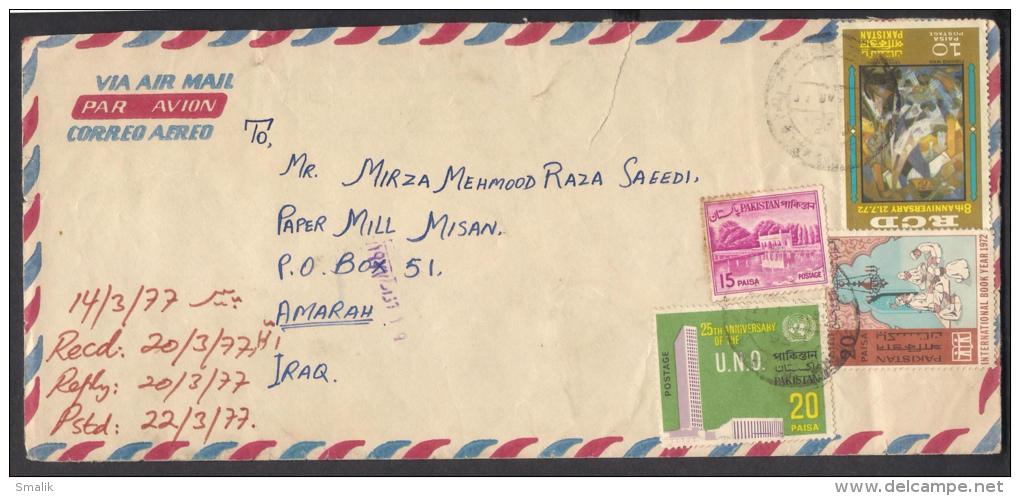 VIA AIR MAIL
PAR AVION
CORREO AEREO
To,
Mr. MIRZA MEHMOOD RAZA SAEEDI.
PAPER MILL MISAN.
P.O. BOX 51.
AMARAH.
IRAQ.
14/3/77
Recd: 20/3/77
Reply: 20/3/77
Pstd: 22/3/77.
10
PAISA
POSTAGE
পাকিস্তান
PAKISTAN
RCD
8th ANNIVERSARY 21.7.72
پاکستان PAKISTAN পাকিস্তান
15 PAISA
POSTAGE
INTERNATIONAL BOOK YEAR 1972
PAKISTAN
পাকিস্তান
پاکستان
20 PAISA
25TH ANNIVERSARY
OF THE
U.N.O.
POSTAGE
পাকিস্তান
پاکستان
PAKISTAN
20
PAISA
Smalik
www.delcampe.net